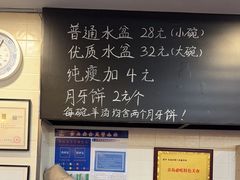 普通水盆 28元(小碗)
优质水盆 32元(大碗)
纯瘦加 4元
月牙饼 2元/个
每碗羊汤均含两个月牙饼!